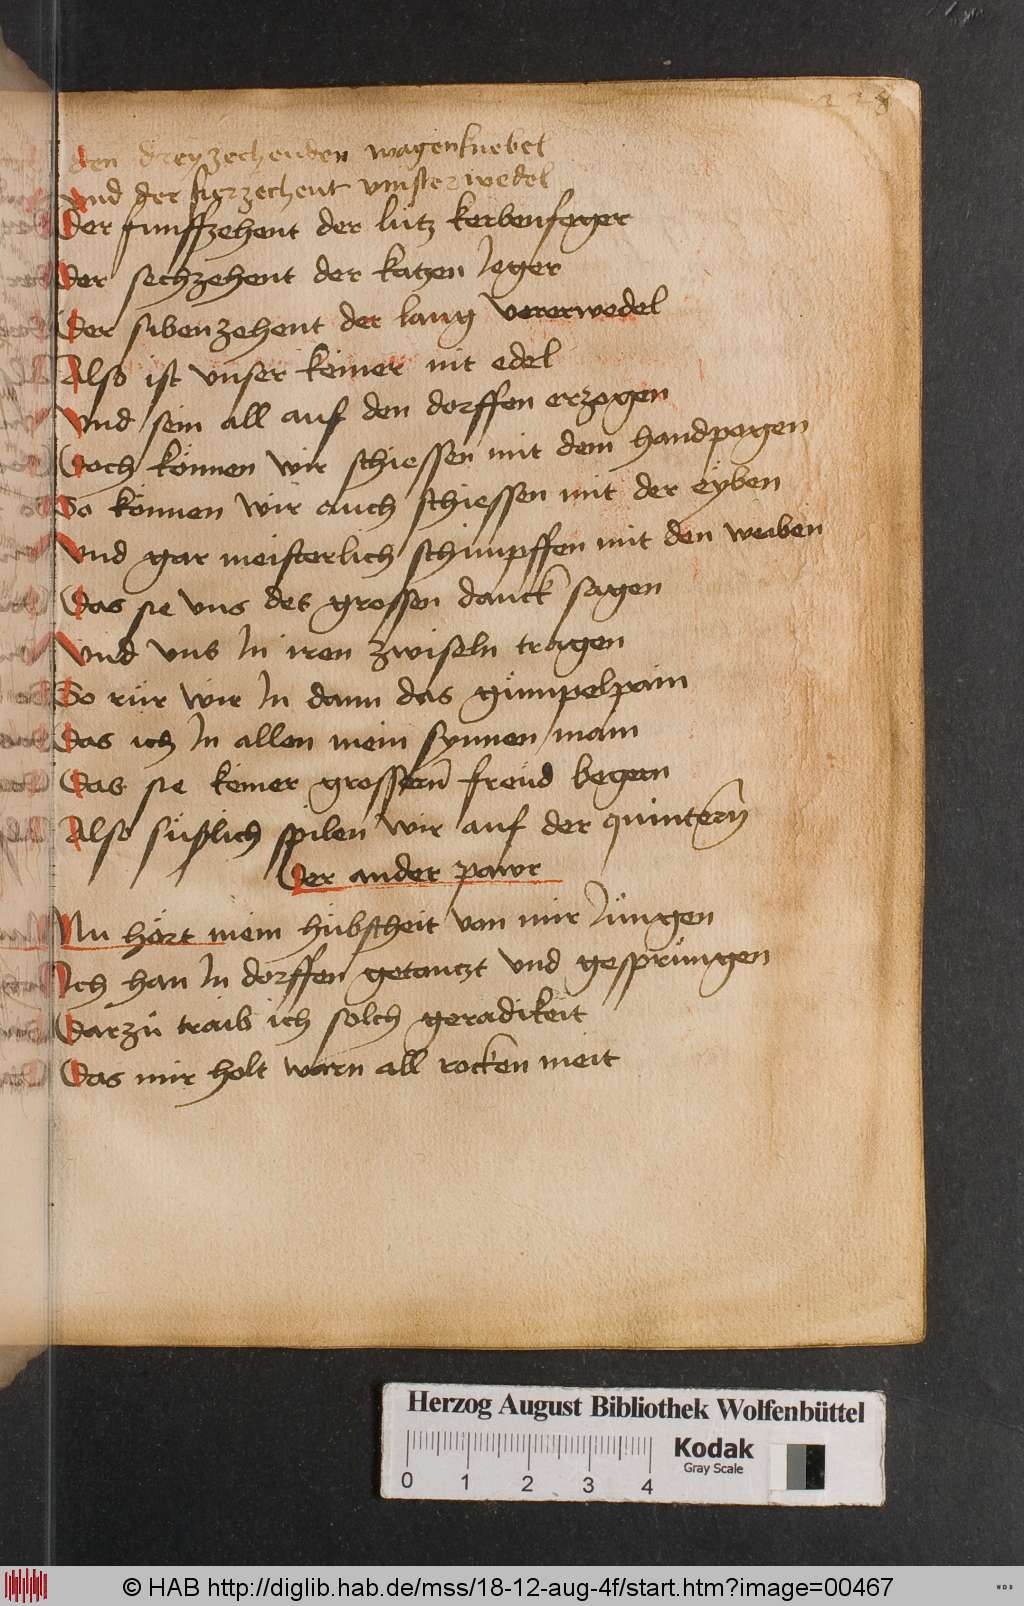 den dreyzechenden wagenknebel
vnd der fierzechent vinster wedel
Der funffzehent der lutz kerbenfeger
Der sechzehent der katzen Jeger
Der sibenzehent der lang vererwedel
Also ist vnser keiner nit edel
Vnd sein all auf den dorffen erzogen
Doch können wir schiessen mit dem handpogen
So können wir auch schiessen mit der eyben
Vnd gar meisterlich schimpffen mit den weiben
Das sie vns des grossen danck sagen
Vnd vns In iren zwiseln tragen
So rür wir In dann das gümpelpain
Das ich In allen mein synnen main
Das sie keiner grossern freud begern
Also süßlich spilen wir auf der quintern
Der ander pawr
Nu hört mein hübscheit von mir Jungen
Ich han In dorffen getanczt vnd gesprüngen
Darzu traib ich solch geradikeit
Das mir holt warn all rocken meit
Herzog August Bibliothek Wolfenbüttel
Kodak
Gray Scale
0 1 2 3 4
© HAB http://diglib.hab.de/mss/18-12-aug-4f/start.htm?image=00467